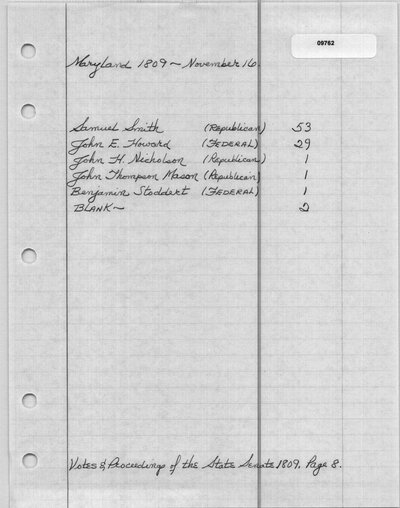 09762
Maryland 1809 ~ November 16.
Samuel Smith (Republican) 53
John E. Howard (FEDERAL) 29
John H. Nicholson (Republican) 1
John Thompson Mason (Republican) 1
Benjamin Stoddert (FEDERAL) 1
BLANK ~ 2
Votes & Proceedings of the State Senate 1809. Page 8.